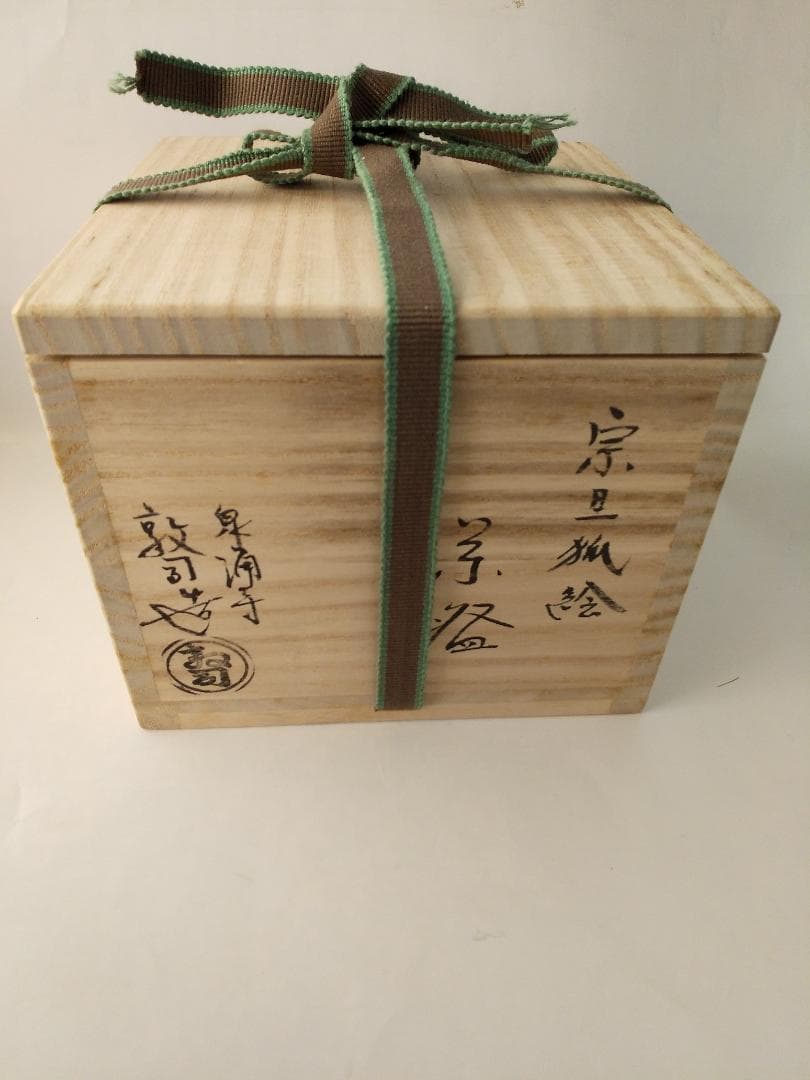 宗旦狐絵
茶盌
泉涌寺
敦司造
敦司